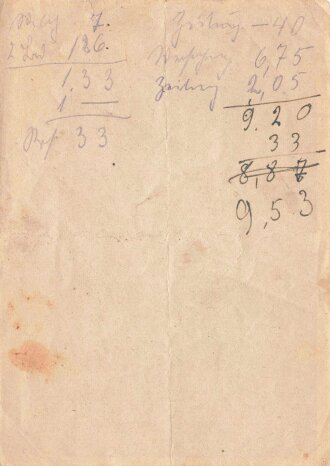 7.
126.
1.33
1 —
33
Zeitung — 40
6,75
Zeitung 2,05
9.20
33
8,87
9,53